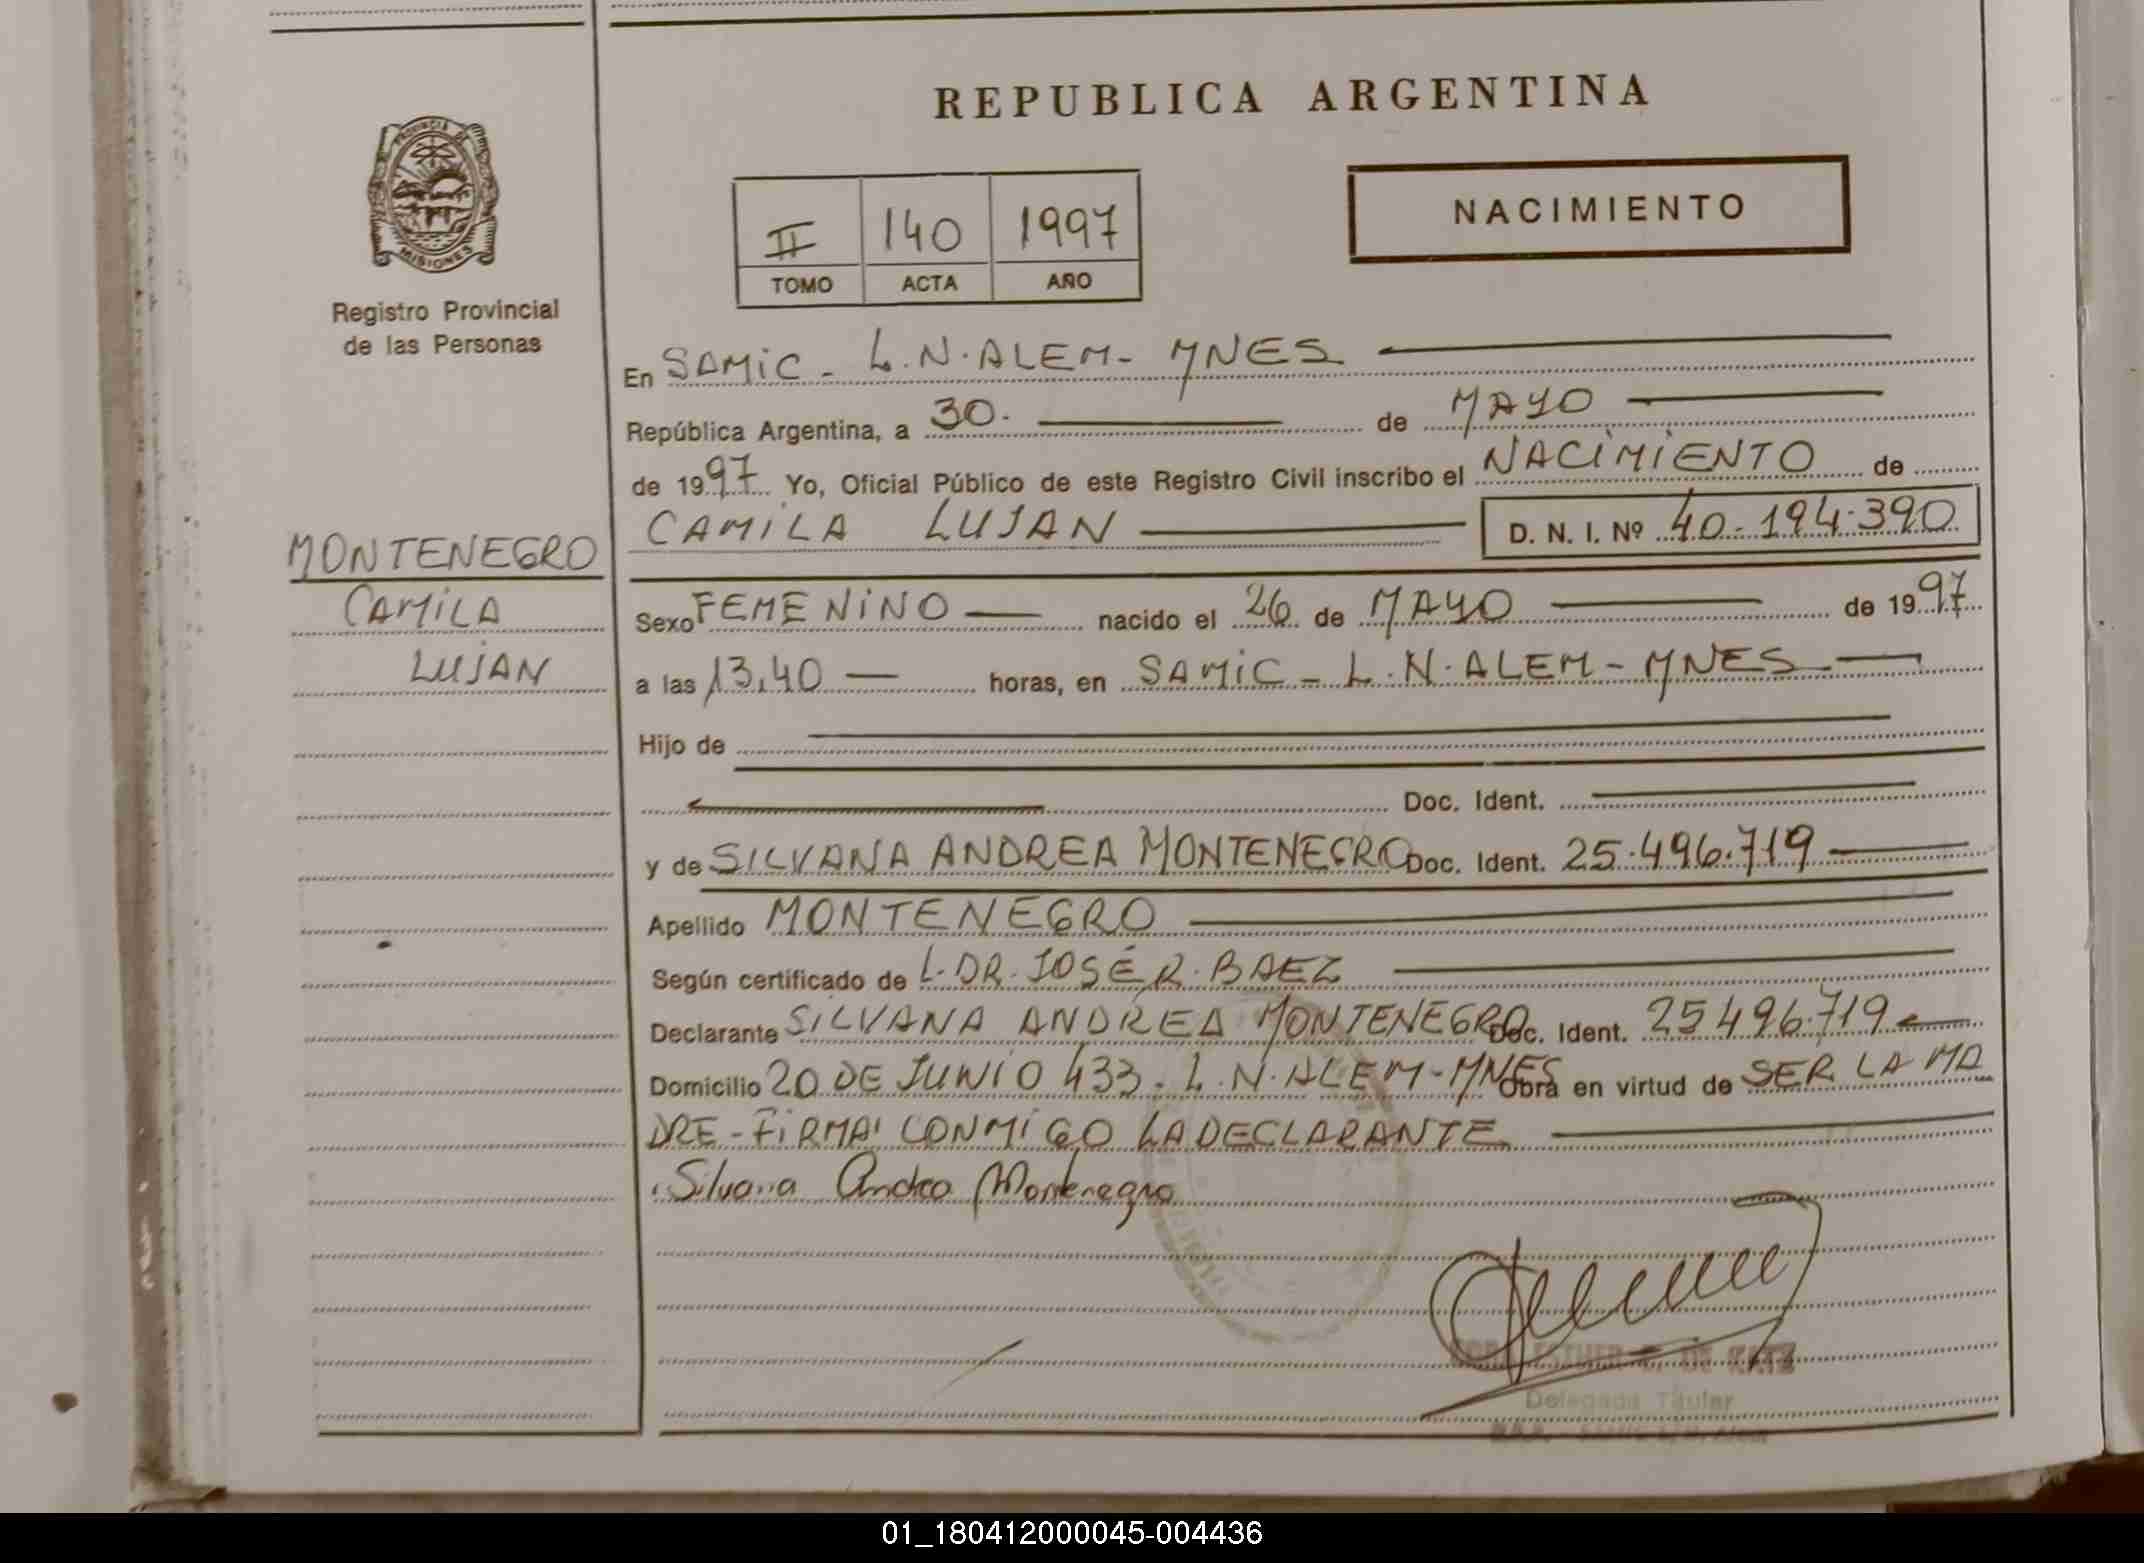 REPUBLICA ARGENTINA
PROVINCIA DE
MISIONES
Registro Provincial
de las Personas
II 140 1997
TOMO ACTA AÑO
NACIMIENTO
En SAMIC - L.N. ALEM - MNES
República Argentina, a 30. de MAYO
de 1997 Yo, Oficial Público de este Registro Civil inscribo el NACIMIENTO de
CAMILA LUJAN D. N. I. Nº 40.194.390
MONTENEGRO
CAMILA
LUJAN
Sexo FEMENINO nacido el 26 de MAYO de 1997
a las 13,40 horas, en SAMIC - L.N. ALEM - MNES
Hijo de
Doc. Ident.
y de SILVANA ANDREA MONTENEGRO Doc. Ident. 25.496.719
Apellido MONTENEGRO
Según certificado de L. DR. JOSÉ R. BAEZ
Declarante SILVANA ANDREA MONTENEGRO Doc. Ident. 25496.719
Domicilio 20 DE JUNIO 433. L.N. ALEM - MNES Obra en virtud de SER LA MA
DRE - FIRMA CONMIGO LA DECLARANTE
Silvana Andrea Montenegro
ESTHER DE KATZ
Delegada Titular
01_180412000045-004436